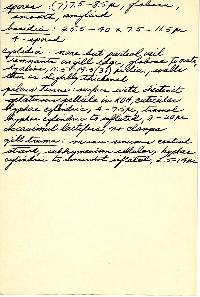 spores: (7) 7.5-8.5 µ, globose,
smooth, amyloid
basidia: 25.5-40 x 7.5-11.5 µ
4-spored
cystidia: none but partial veil
remnants on gill edge, globose to
hyaline, 11-29 (-31) µ, walls
thin or slightly thickened
pileus trama: surface with distinct
gelatinous pellicle in KOH, cuticular
hyphae cylindric, 4-7.5 µ, tramal
hyphae cylindric to inflated, 7-20 µ
occasional lactifers, no clamps
gill trama: narrow central
strand, subhymenium cellular, hyphae
cylindric to somewhat inflated, 2.5-14 µ